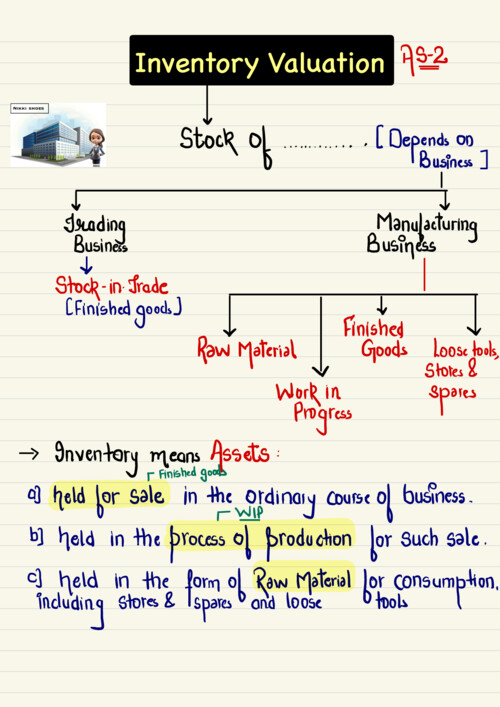 Inventory Valuation AS-2
NIKKI SHOES
Stock of ............. [Depends on
Business]
Trading
Business
Manufacturing
Business
Stock-in-Trade
[Finished goods]
Raw Material
Work in
Progress
Finished
Goods
Loose tools,
Stores &
Spares
→ Inventory means Assets:
Finished goods
a] held for sale in the ordinary course of business.
WIP
b] held in the process of production for such sale.
c] held in the form of Raw Material for consumption,
including stores & spares and loose tools